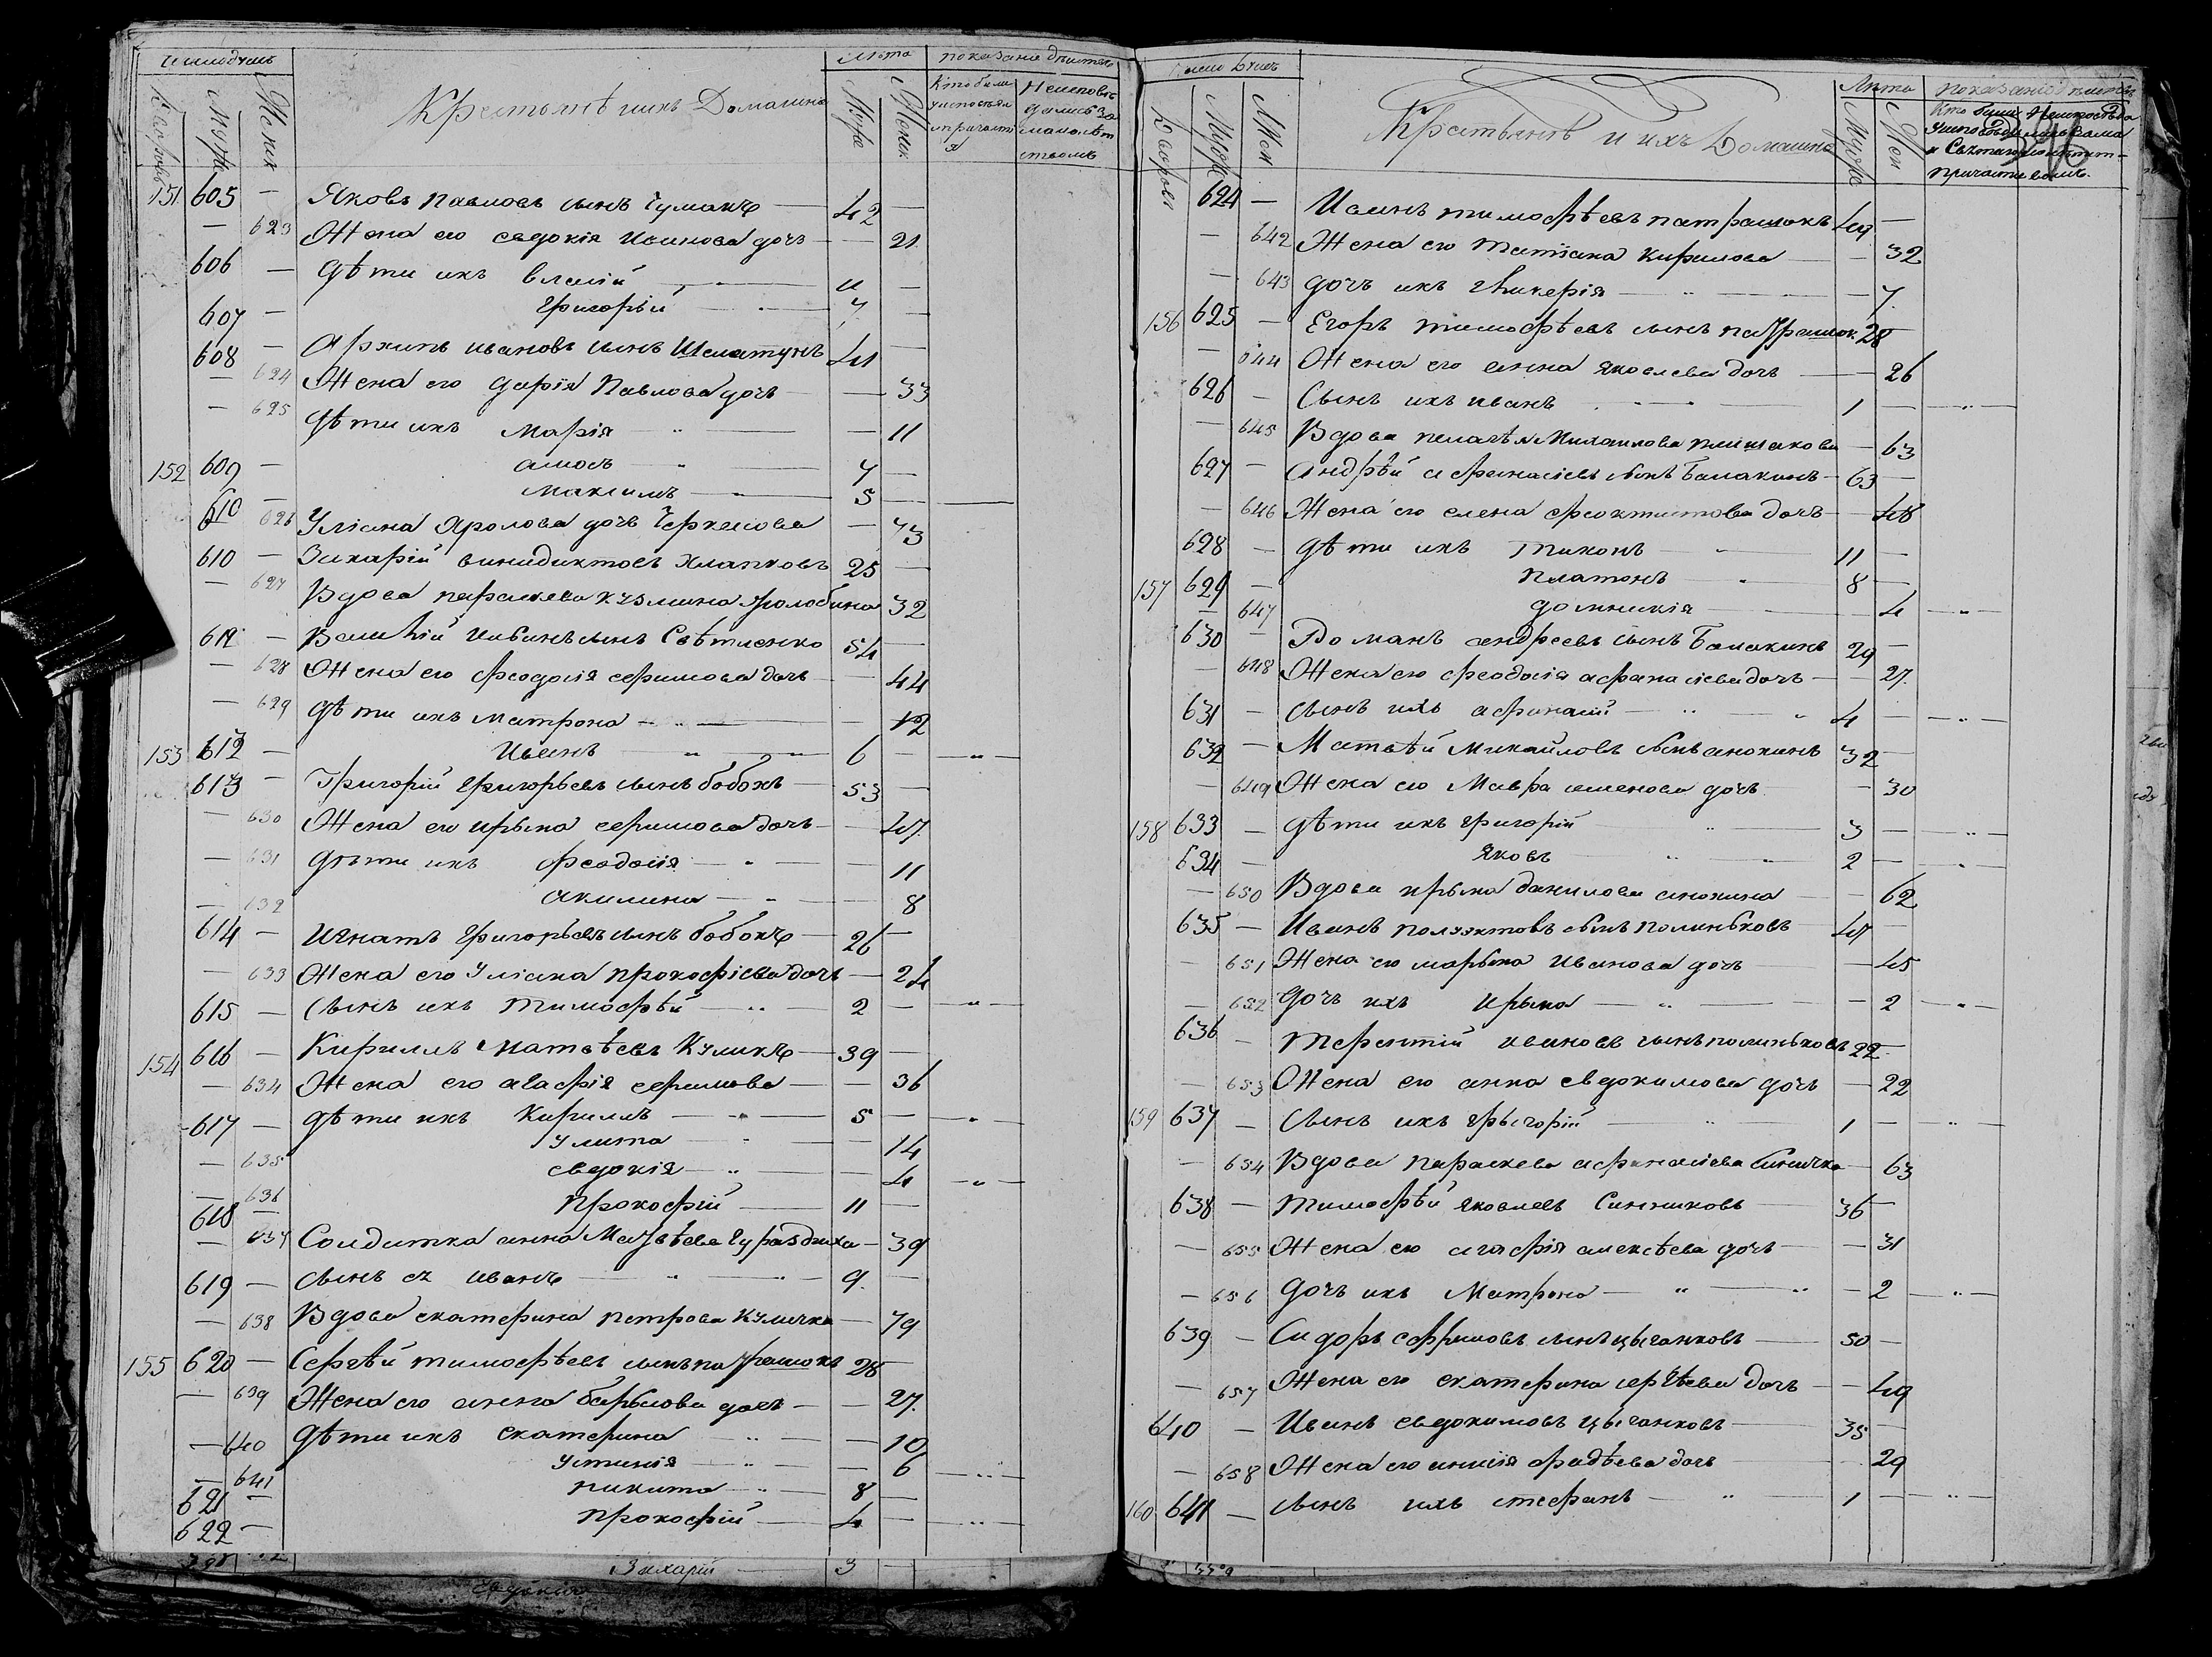 Число душъ
Крестьянѣ иихъ Домашнѣ
Лѣта
показание дѣйства
Дворовъ
Мужес
Женск
Мужс
Женск
Кто были
Неисповѣ
причасти
я
малолѣт
ствомъ
151 605 — Яковъ Павловъ сынъ Чумакъ — 42 —
— 623 Жена его евдокія Иванова дочь — — 21
606 — Дѣти ихъ Власій — 11 —
607 — Григорьій — 7 —
608 — Архипъ ивановъ сынъ Шелатунъ 41 —
— 624 Жена его Дарія Павлова дочь — 33
— 625 Дѣти ихъ Марія — — 11
152 609 — амосъ — 7 —
610 — максимъ — 5 —
626 Уліана Фролова дочь Черкесова — 73
610 — Захарій винидиктовъ Хлапковъ 25 —
— 627 Вдова параскева кузмина Фролобина 32
611 — Василій Ильинъ сынъ Свѣтленко 54 —
— 628 Жена его Феодосія ефимова дочь — 44
— 629 Дѣти ихъ матрона — — 12
153 612 — Иванъ — 6 —
613 — Григорій григорьевъ сынъ бобохъ — 53 —
— 630 Жена его ирына ефимова дочь — — 47
— 631 Дѣти ихъ феодосія — — 11
— 632 Акилина — — 8
614 — Игнатъ григорьевъ сынъ бобохъ — 26 —
— 633 Жена его Уліана прокофіева дочь — 24
615 — Сынъ ихъ Тимофѣй — 2 —
154 616 — Кириллъ Матвѣевъ Куликъ — 39 —
— 634 Жена его агафія ефимова — — 36
617 — Дѣти ихъ Кириллъ — 5 —
— 635 Улита — 14
— 636 евдокія — — 4
618 — Прокофій — 11 —
— 637 Солдатка анна Матвѣева Гураздиха — 39
619 — Сынъ ея иванъ — 9 —
— 638 Вдова екатерина петрова Куличка — 79
155 620 — Сергѣй тимофѣевъ сынъ патрашокъ 28 —
— 639 Жена его анна барысова дочь — — 27
— 640 Дѣти ихъ екатерина — — 10
— 641 Устинія — — 6
621 — никита — 8 —
622 — Прокофій — 4 —
Захарій — 3 —
Число Душъ
Крестьянѣ и ихъ Домашнѣ
Лѣта
показание дѣйства
Дворовъ
Мужс
Жен
Мужс
Жен
Кто были
346
причастія
624 — Иванъ тимофѣевъ патрашокъ 49 —
— 642 Жена его Татіана Кирилова — — 32
— 643 дочь ихъ гликерія — — 7
156 625 — Егоръ тимофѣевъ сынъ патрашок. 28 —
— 644 Жена его анна Яковлева дочь — — 26
626 — Сынъ ихъ иванъ — 1 —
— 645 Вдова пелагѣя Михаилова плишакова — 63
627 — андрѣй афанасіевъ сынъ Балакинъ — 63 —
— 646 Жена его елена феоктистова дочь — 48
628 — Дѣти ихъ Тихонъ — 11 —
157 629 — Платонъ — 8 —
— 647 домникія — — 4
630 — Романъ андреевъ сынъ Балакинъ 29 —
— 648 Жена его феодосія афанасіева дочь — 27
631 — Сынъ ихъ афанасій — 4 —
632 — Матвѣй Михайловъ сынъ анохинъ 32 —
— 649 Жена его Мавра семенова дочь — 30
158 633 — Дѣти ихъ григорій — 3 —
634 — Яковъ — 2 —
— 650 Вдова ирына данилова анохина — 62
635 — Иванъ полуэктовъ сынъ полиньковъ 47 —
— 651 Жена его марына Иванова дочь — 45
— 652 Дочь ихъ ирына — — 2
636 — Терентій ивановъ сынъ полиньковъ 22 —
— 653 Жена его анна евдокимова дочь — 22
159 637 — Сынъ ихъ грыгорій — 1 —
— 654 Вдова параскева афанасіева синичка — 63
638 — Тимофѣй Яковлевъ Синчиковъ — 36 —
— 655 Жена его агафія алексѣева дочь — 31
— 656 Дочь ихъ Матрона — — 2
639 — Сидоръ ефимовъ сынъ цыганковъ — 50 —
— 657 Жена его екатерина сергѣева дочь — 49
640 — Иванъ евдокимовъ цыганковъ — 35 —
— 658 Жена его анисія фадѣева дочь — 29
160 641 — Сынъ ихъ стефанъ — 1 —